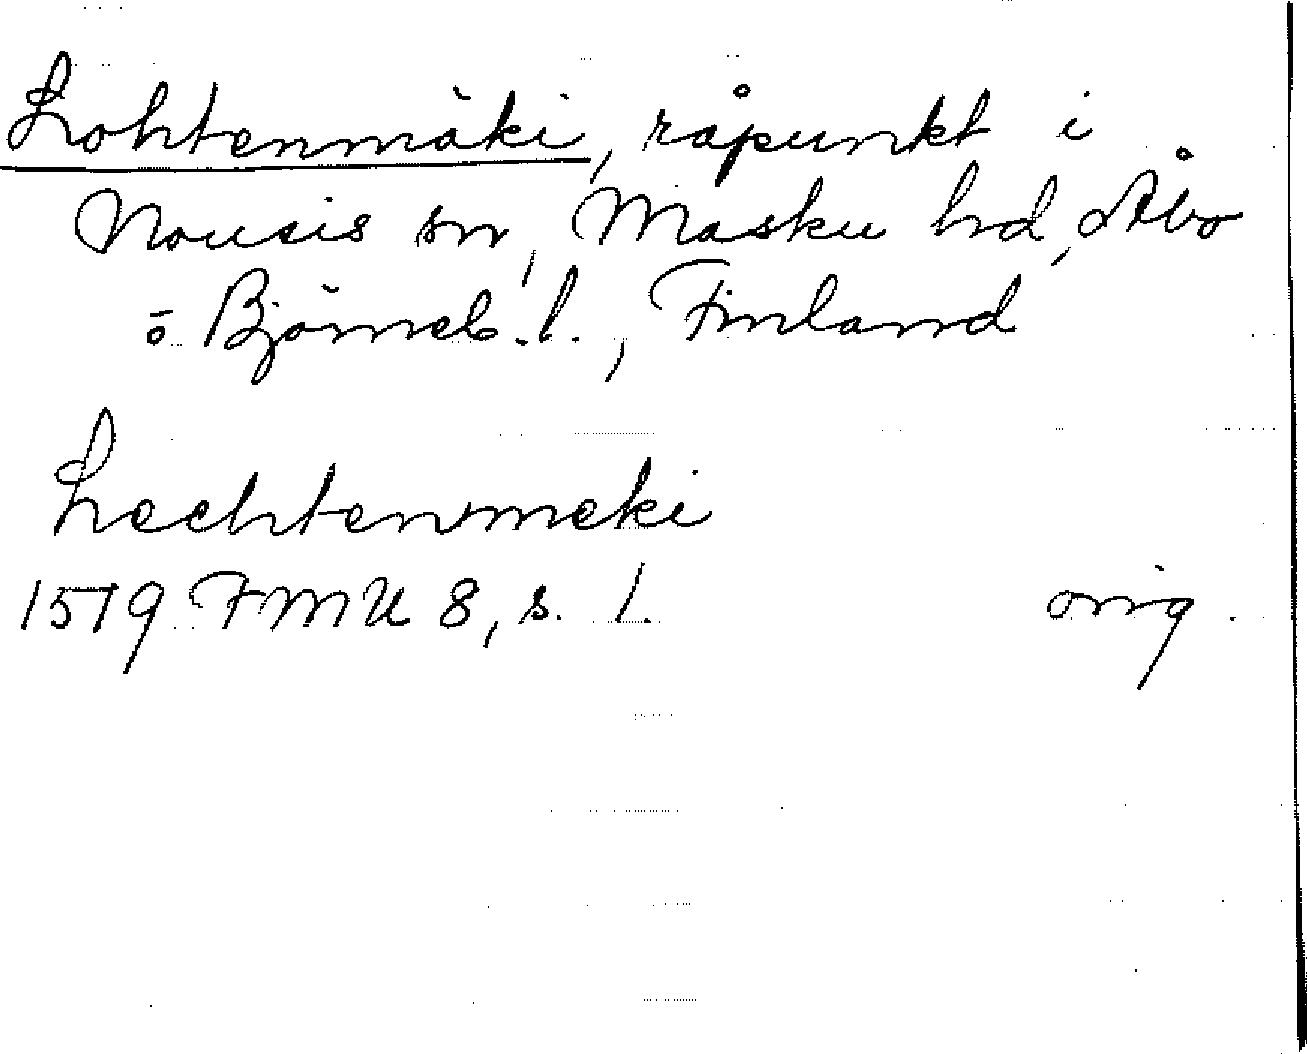 Lohtenmäki, råpunkt i
Nousis sn, Masku hd, Åbo
o Björneb. l., Finland
Lochtenmeki
1519 FMU 8, s. 1.
orig.